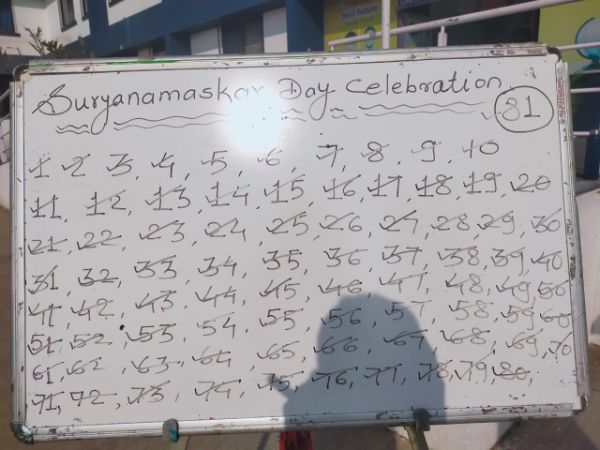 Suryanamaskar Day Celebration
81
1 2 3, 4, 5, 6, 7, 8, 9, 10
11, 12, 13, 14, 15, 16, 17, 18, 19, 20
21, 22, 23, 24, 25, 26, 27, 28, 29, 30
31, 32, 33, 34, 35, 36, 37, 38, 39, 40
41, 42, 43, 44, 45, 46, 47, 48, 49, 50
51, 52, 53, 54, 55, 56, 57, 58, 59, 60
61, 62, 63, 64, 65, 66, 67, 68, 69, 70
71, 72, 73, 74, 75, 76, 77, 78, 79, 80,